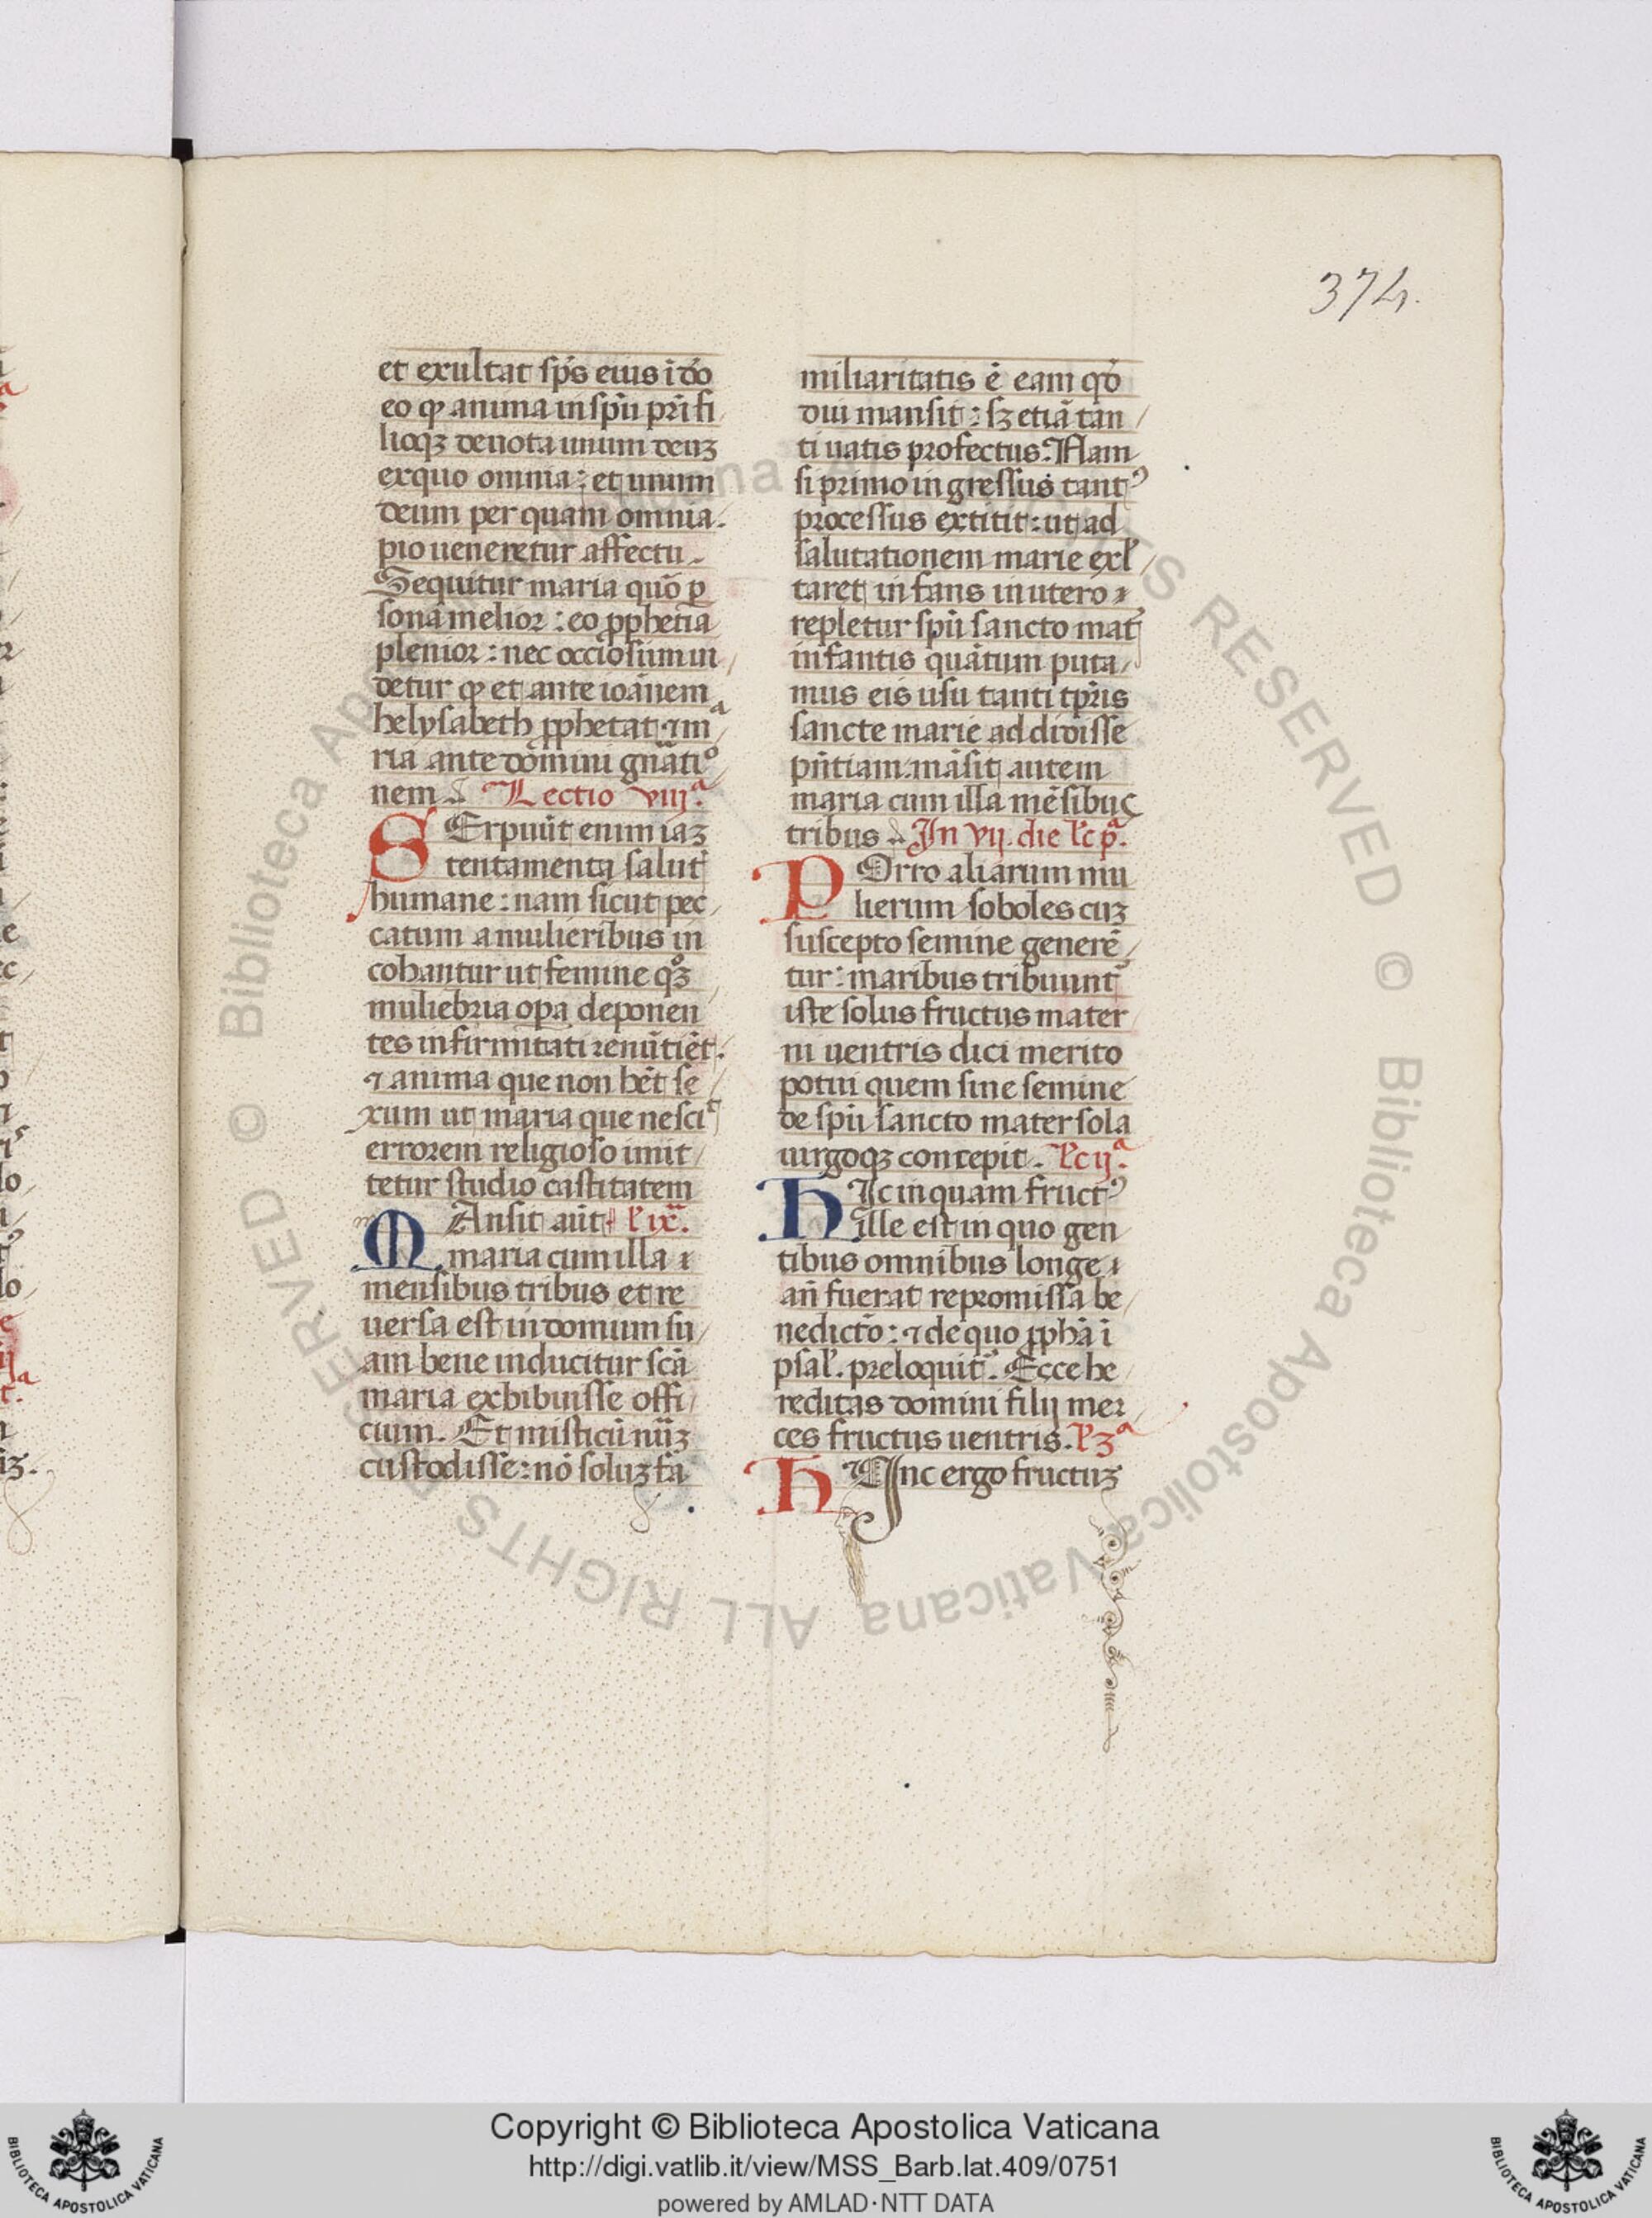 374.
et exultat sp̄s eius ī dō
eo ꝙ anima in spū pr̄i fi
lioqꝫ deuota unum deuꝫ
ex quo omnia : et unum
deum per quam omnia.
pio ueneretur affectu.
Sequitur maria quō ꝑ
sona melior : eo ꝓphetia
plenior : nec occiosum ui
detur ꝙ et ante ioānem
helysabeth ꝓphetat ⁊ mᵃ
ria ante domini gnatiº
nem. Lectio viijᵃ.
SErpūt enim iaꝫ
tentamenta salut̄
humane : nam sicut pec
catum a mulieribus in
cohantur ut femine qºꝫ
muliebria oꝑa deponen
tes infirmitati renūtiēt.
⁊ anima que non hēt se
xum ut maria que nesci͛
errorem religioso imit
tetur studio castitatem
MAnsit aūt lͨ ixᵃ.
maria cum illa
mensibus tribus et re
uersa est in domum su
am bene inducitur scā
maria exhibuisse offi
cium. Et misticū nūꝫ
custodisse : nō soluꝫ fa
miliaritatis ē eam qd̄
diu mansit : sꝫ etiā tan
ti uatis profectus. Nam
si primo in gressus tantꝰ
processus extitit : ut ad
salutationem marie exl̄
taret in fans in utero
repletur spū sancto mat͛
infantis quātum puta
mus eis usu tanti tpr̄is
sancte marie addidisse
pn̄tiam. māsit autem
maria cum illa mēsibus
tribus. In vij. die lc̄ pᵃ.
POrro aliarum mu
lierum soboles cuꝫ
suscepto semine generē
tur : maribus tribuunt͛
iste solus fructus mater
ni uentris dici merito
potui quem sine semine
de spū sancto mater sola
uirgoqꝫ concepit. lc̄ ijᵃ.
HIc inquam fructꝰ
ille est in quo gen
tibus omnibus longe
an̄ fuerat repromissa be
nedictō : ⁊ de quo ꝓphā ī
psal̄. preloquit͛. Ecce he
reditas domini filij mer
ces fructus uentris. lͨ 3ᵃ
HInc ergo fructuꝫ
© Biblioteca Apostolica Vaticana ALL RIGHTS RESERVED © Biblioteca Apostolica Vaticana ALL RIGHTS RESERVED
Copyright © Biblioteca Apostolica Vaticana
http://digi.vatlib.it/view/MSS_Barb.lat.409/0751
powered by AMLAD·NTT DATA
BIBLIOTECA APOSTOLICA VATICANA
BIBLIOTECA APOSTOLICA VATICANA